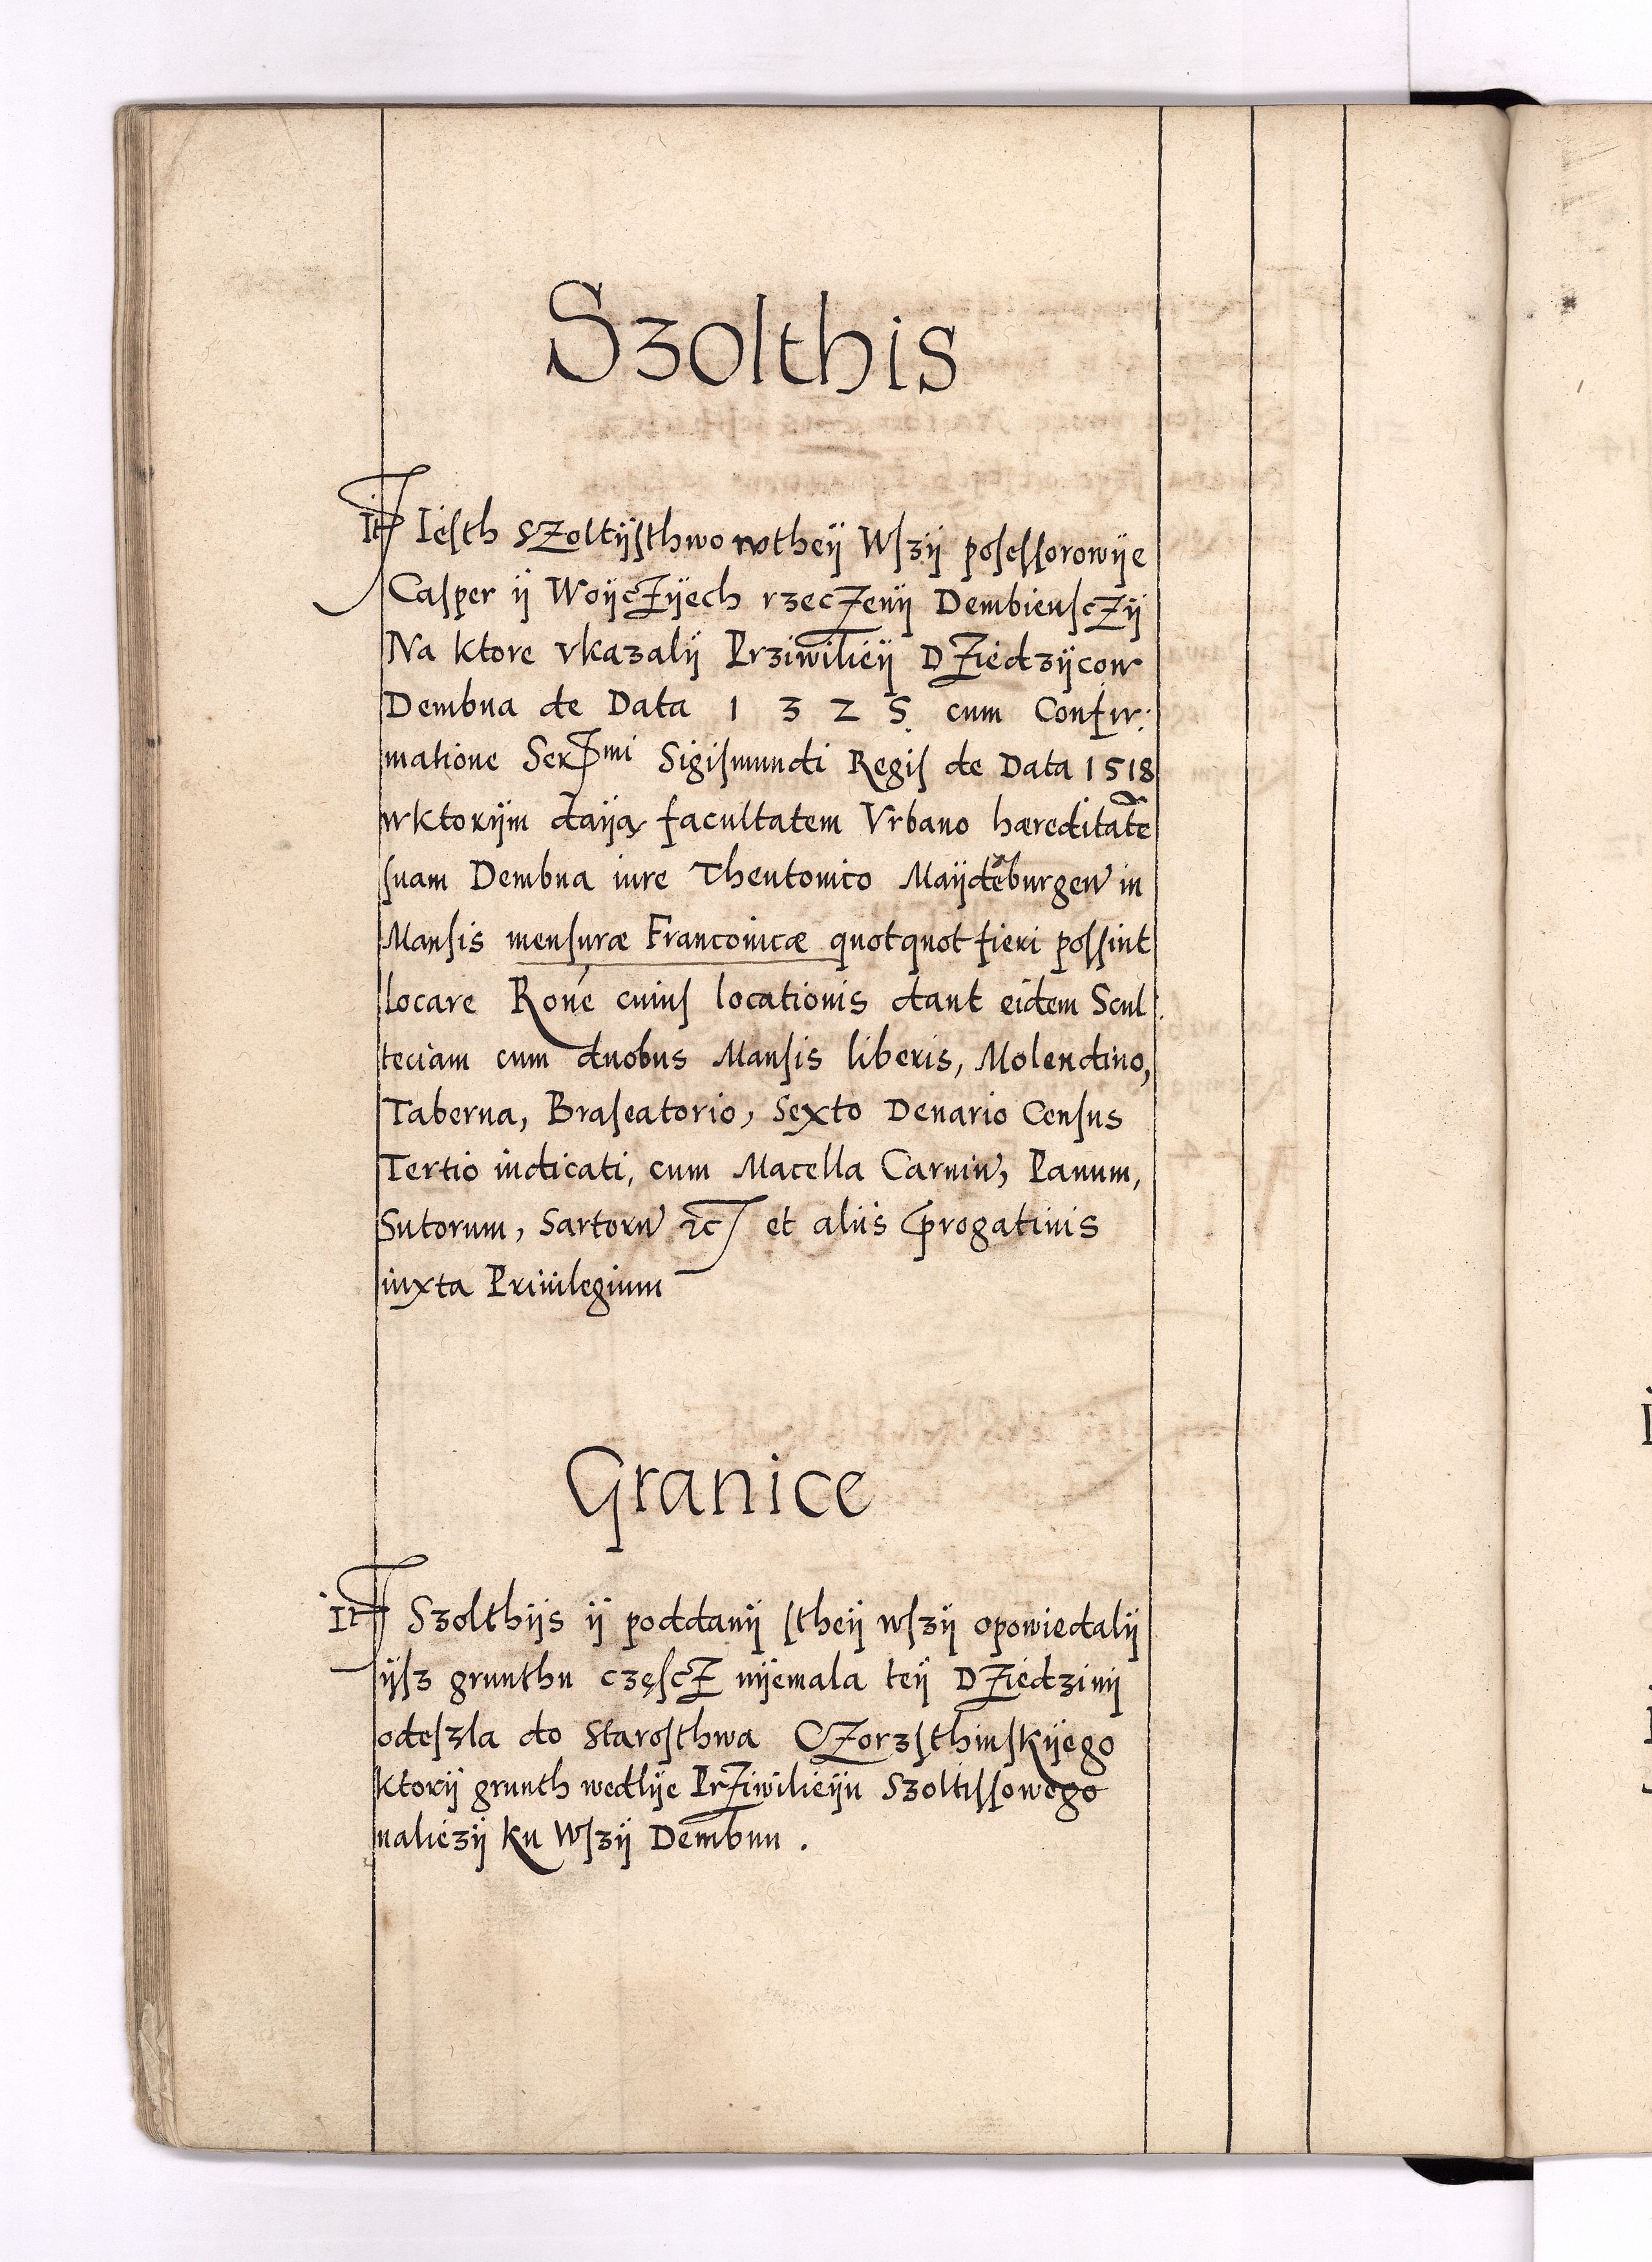 Szolthis
It Iesth szoltÿsthwo wtheÿ Wszÿ posessorowÿe
Casper ÿ WoÿcZÿech rzecZenÿ DembienscZÿ
Na ktore vkazalÿ Prziwilieÿ DZiedzÿcow
Dembna de Data 1 3 2 5 cum Confir:
matione Sermi Sigismundi Regis de Data 1518
wktorÿm daÿą facultatem Vrbano hæreditatē
suam Dembna iure Theutonico Maÿdeburgen in
Mansis mensuræ Franconicæ quotquot fieri possint
locare Rone cuius locationis dant eidem Scul:
teciam cum duobus Mansis liberis, Molendino,
Taberna, Braseatorio, Sexto Denario Census
Tertio iudicati, cum Macella Carniu, Panum,
Sutorum, Sartoru etc et aliis progatiuis
iuxta Priuilegium
Granice
It Szolthÿs ÿ poddanÿ stheÿ wszÿ opowiedalÿ
ÿsz grunthu częscZ nÿemala teÿ DZiedzinÿ
odeszla do Starosthwa CZorzsthinskÿego
ktorÿ grunth wedlÿe PrZiwilieÿu Szoltissowego
naliezÿ ku Wszÿ Dembnu .